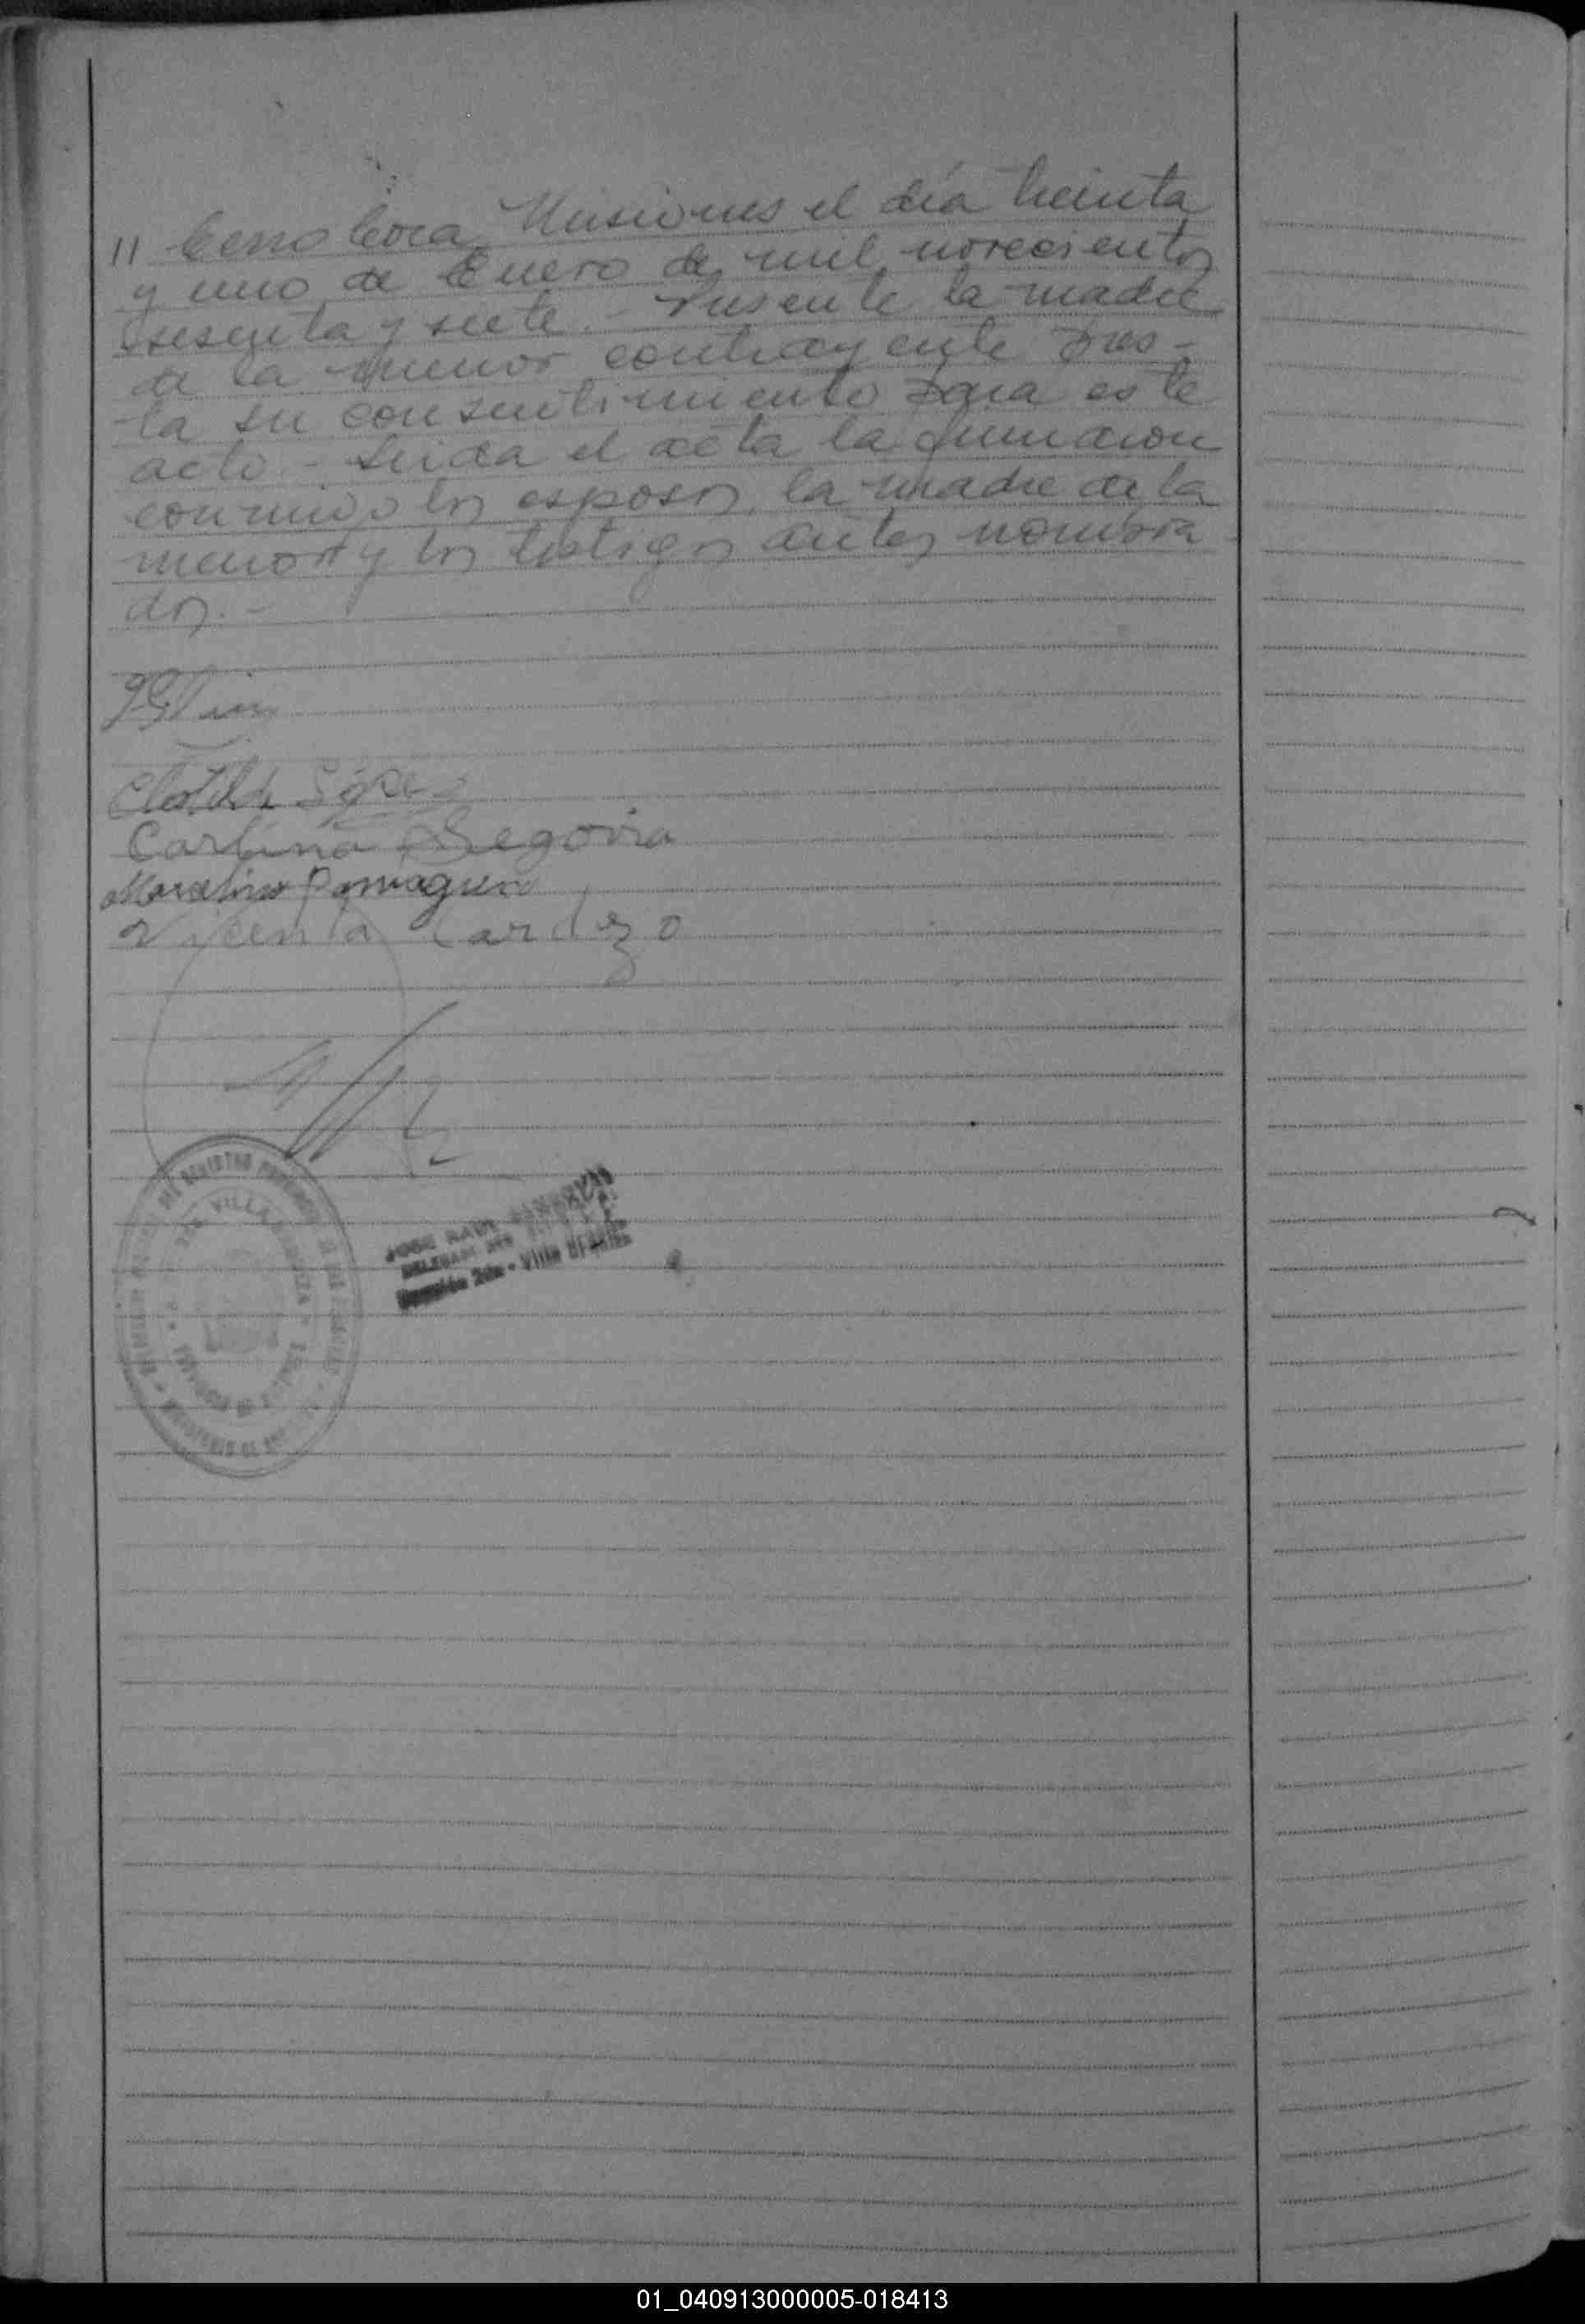 11 Cerro Cora Misiones el día treinta
y uno de Enero de mil novecientos
sesenta y siete.- Presente la madre
de la menor contrayente pres-
ta su consentimiento para este
acto.- Leida el acta la firmaron
conmigo los esposos, la madre de la
menor y los testigos antes nombra-
dos.-
Clotilde
Carlina Segovia
Marcelino Paniagua
Vicenta Cardozo
VILLA
JOSE RAUL
DELEGADO
Sección 2da - Villa
01_040913000005-018413